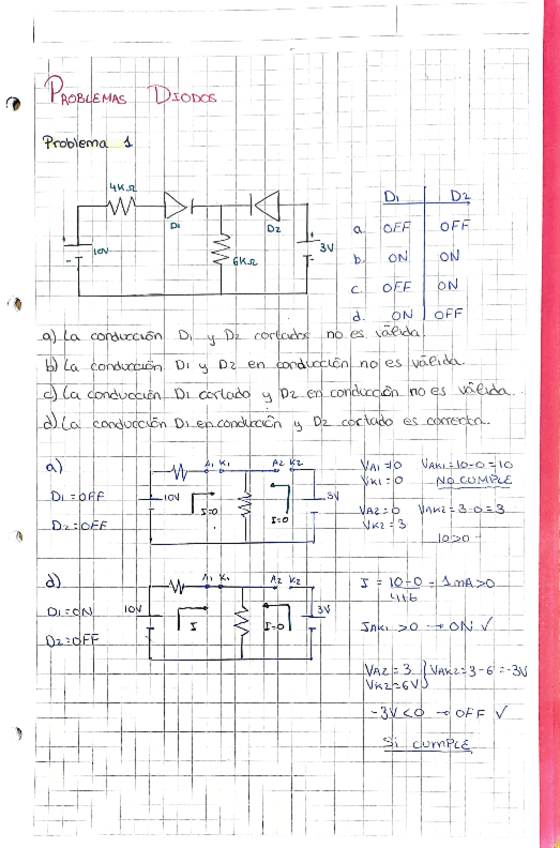 PROBLEMAS DIODOS
Problema 1
4KΩ
D1
D2
10V
6KΩ
3V
D1 D2
a. OFF OFF
b. ON ON
c. OFF ON
d. ON OFF
a) La conducción D1 y D2 cortados no es válida
b) La conducción D1 y D2 en conducción no es válida.
c) La conducción D1 cortado y D2 en conducción no es válida.
d) La conducción D1 en conducción y D2 cortado es correcta.
a)
D1=OFF
D2=OFF
A1 K1 A2 K2
10V I=0 I=0 3V
VA1=10 VAK1=10-0=10
VK1=0 NO CUMPLE
VA2=0 VAK2=3-0=3
VK2=3
10>0
d)
D1=ON
D2=OFF
A1 K1 A2 K2
10V I I=0 3V
I = 10-0 = 1mA>0
4+6
IAK1 >0 → ON ✓
VA2=3 } VAK2=3-6=-3V
VK2=6V
-3V<0 → OFF ✓
Si CUMPLE